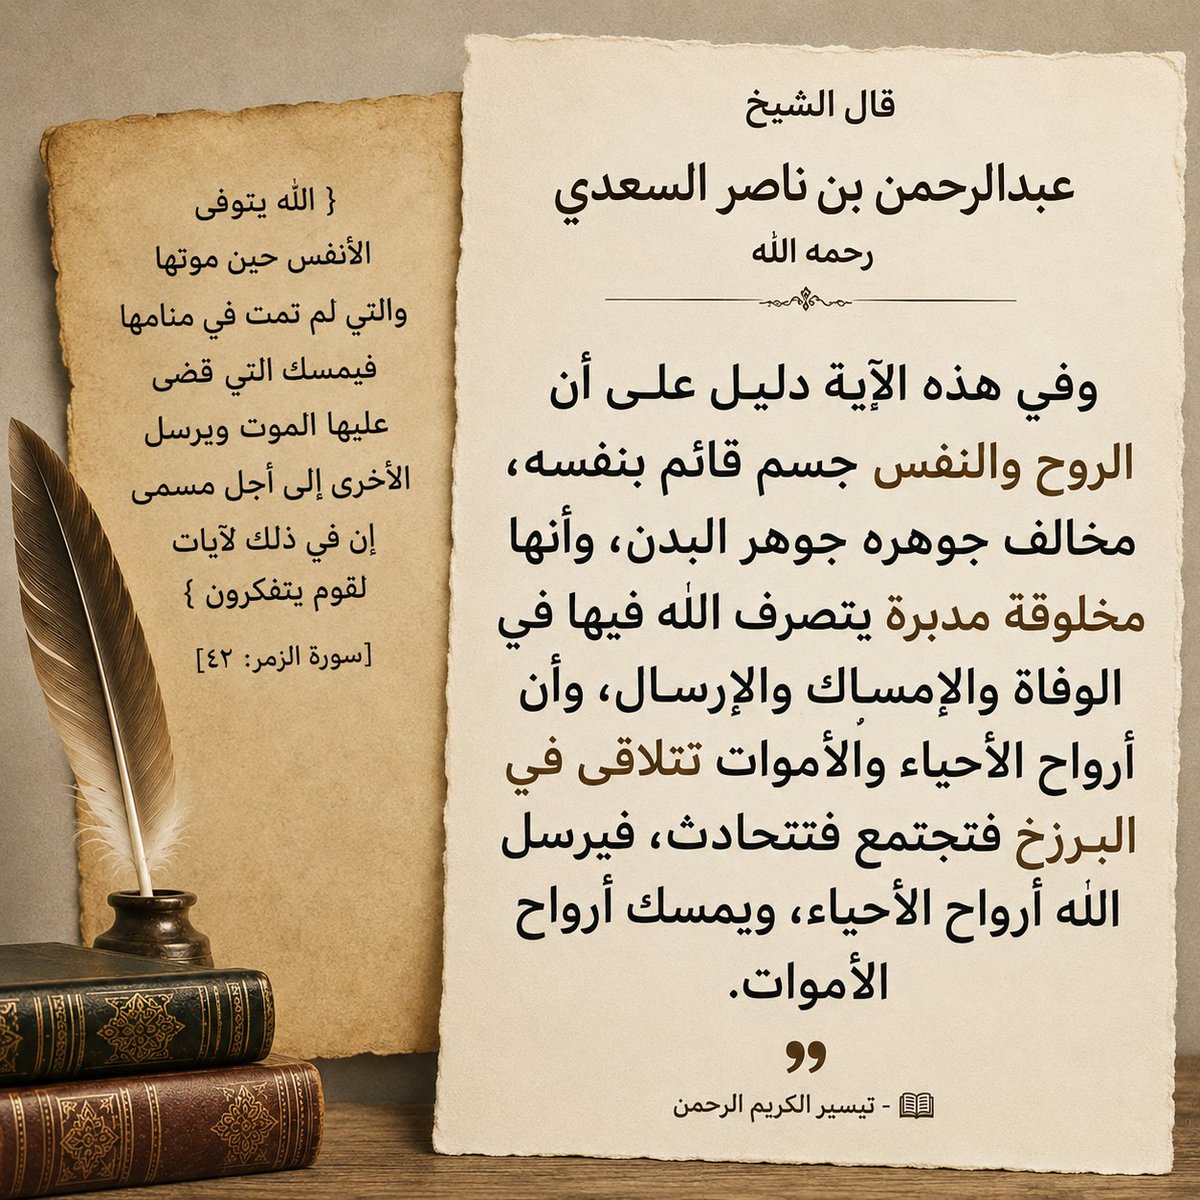 قال الشيخ
عبدالرحمن بن ناصر السعدي
رحمه الله
وفي هذه الآية دليل على أن
الروح والنفس جسم قائم بنفسه،
مخالف جوهره جوهر البدن، وأنها
مخلوقة مدبرة يتصرف الله فيها في
الوفاة والإمساك والإرسال، وأن
أرواح الأحياء والأموات تتلاقى في
البرزخ فتجتمع فتتحادث، فيرسل
الله أرواح الأحياء، ويمسك أرواح
الأموات.
❞
📖 - تيسير الكريم الرحمن
{ الله يتوفى
الأنفس حين موتها
والتي لم تمت في منامها
فيمسك التي قضى
عليها الموت ويرسل
الأخرى إلى أجل مسمى
إن في ذلك لآيات
لقوم يتفكرون }
[سورة الزمر: ٤٢]